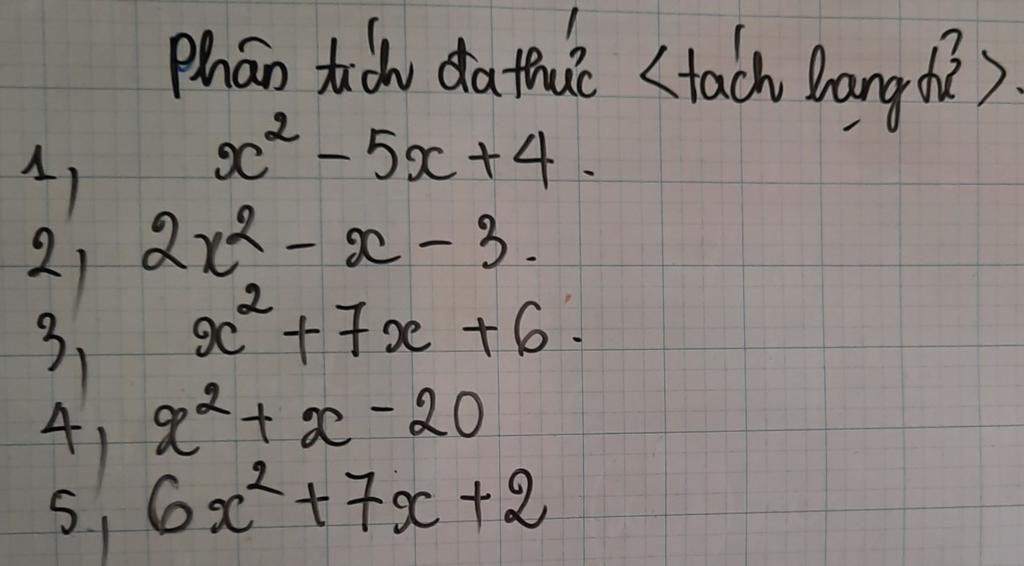 Phân tích đa thức <tách hạng tử>.
1, x² - 5x + 4.
2, 2x² - x - 3.
3, x² + 7x + 6.
4, x² + x - 20
5, 6x² + 7x + 2